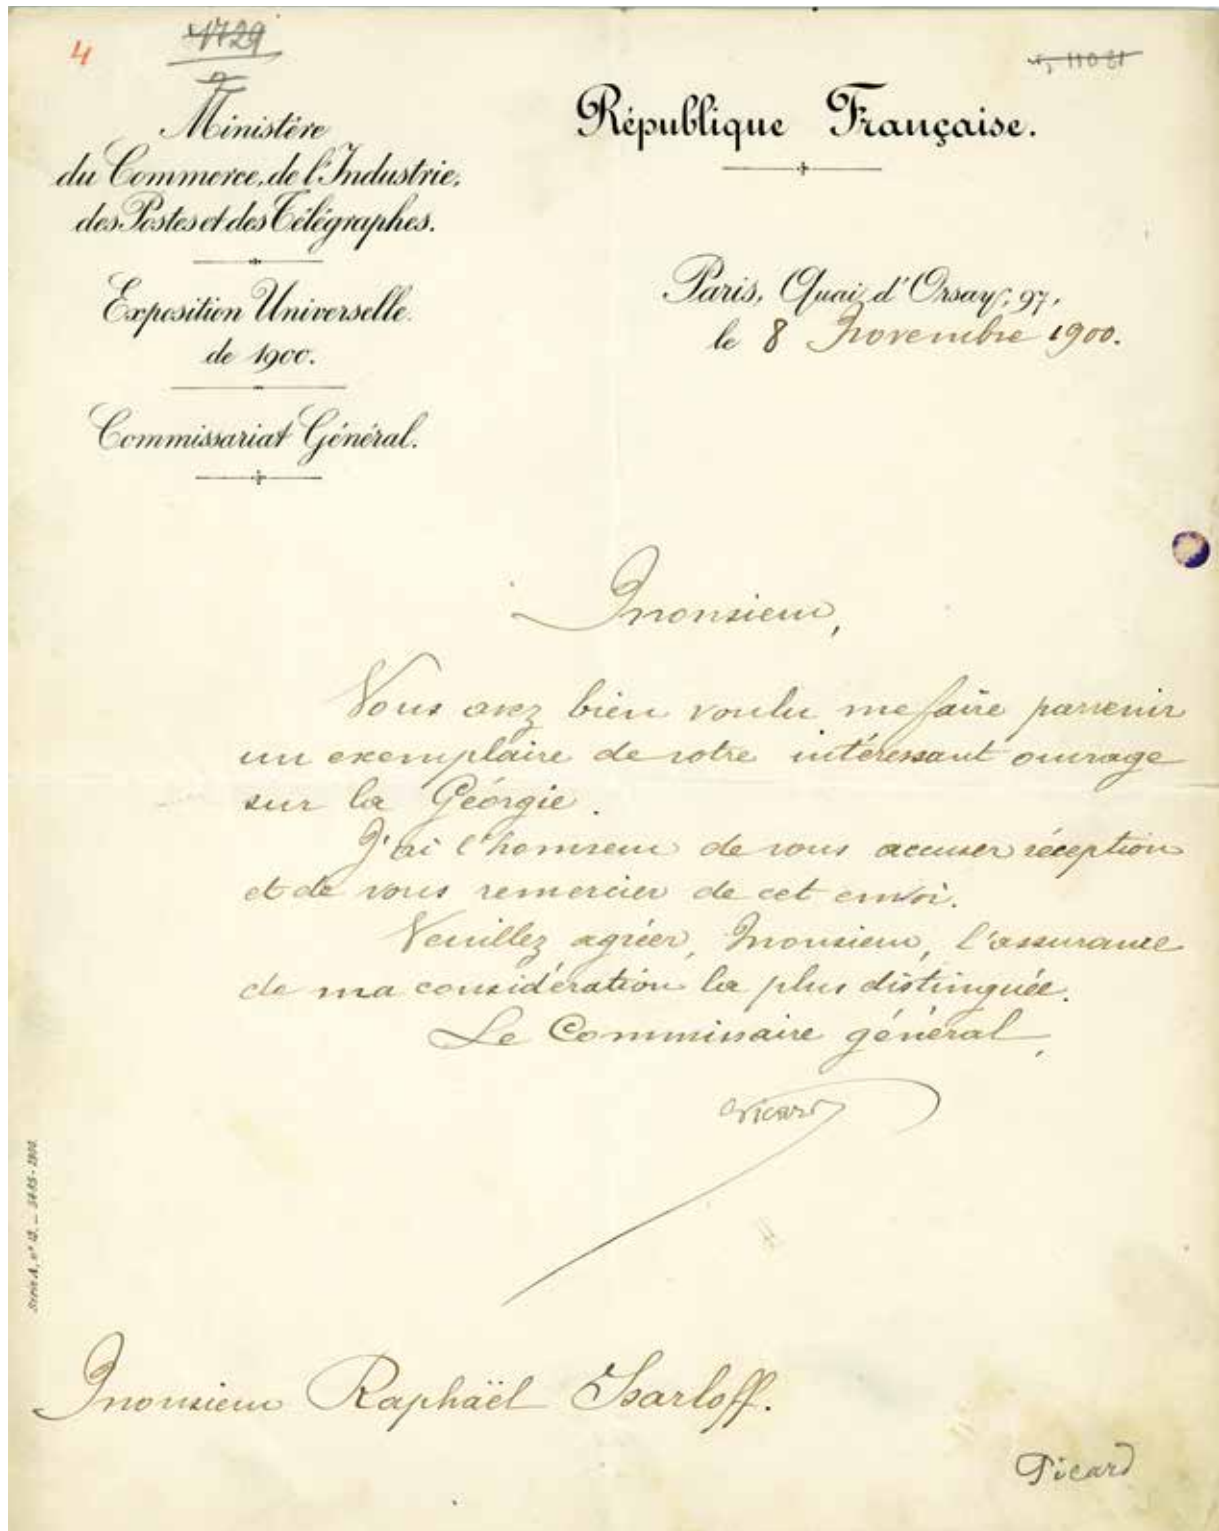 4
1729
11081
Ministère
du Commerce, de l'Industrie,
des Postes et des Télégraphes.
Exposition Universelle
de 1900.
Commissariat Général.
République Française.
Paris, Quai d'Orsay, 97,
le 8 Novembre 1900.
Monsieur,
Vous avez bien voulu me faire parvenir
un exemplaire de votre intéressant ouvrage
sur la Géorgie.
J'ai l'honneur de vous accuser réception
et de vous remercier de cet envoi.
Veuillez agréer, Monsieur, l'assurance
de ma considération la plus distinguée.
Le Commissaire général,
Picard
Monsieur Raphaël Isarloff.
Picard